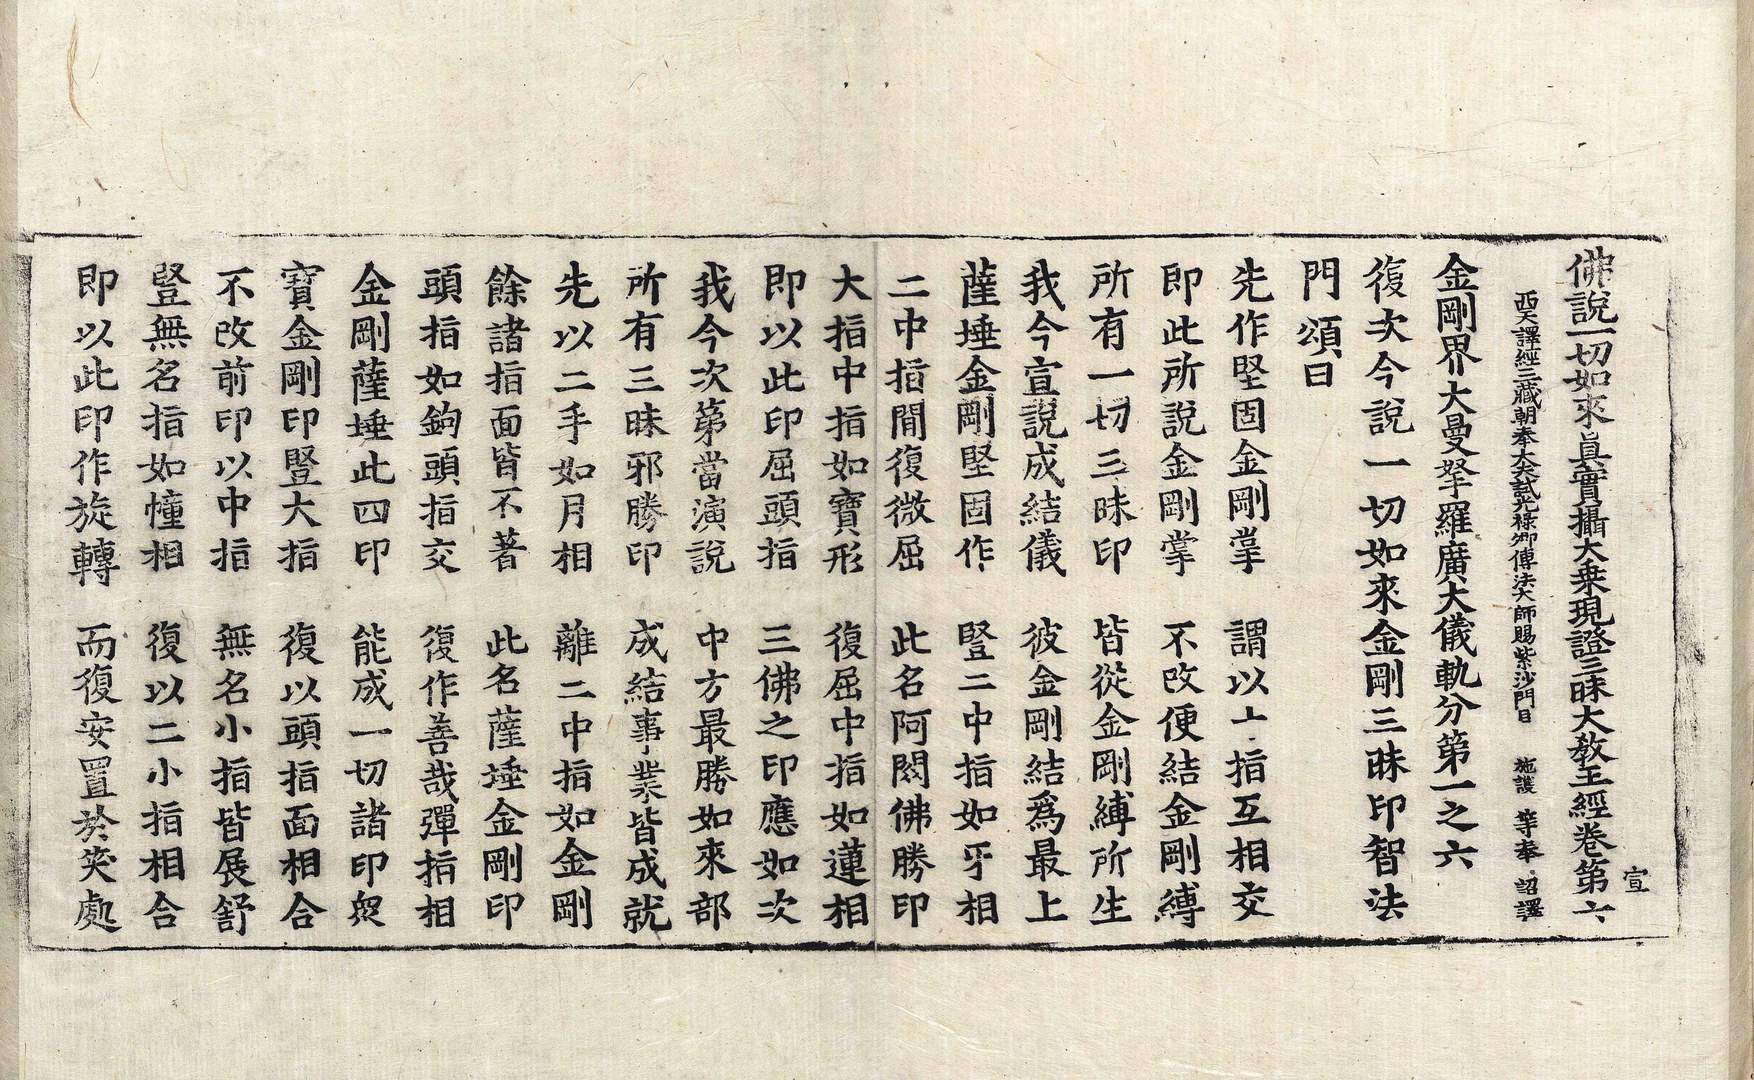 佛說一切如來眞實攝大乗現證三昧大敎王經卷第六
宣
西天譯經三藏朝奉大夫試光祿卿傳法大師賜紫沙門臣 施護 等奉 詔譯
金剛界大曼拏羅廣大儀軌分第一之六
復次今說一切如來金剛三昧印智法
門頌曰
先作堅固金剛掌 謂以上指互相交
即此所說金剛掌 不改便結金剛縛
所有一切三昧印 皆從金剛縛所生
我今宣說成結儀 彼金剛結爲最上
薩埵金剛堅固作 豎二中指如牙相
二中指間復微屈 此名阿閦佛勝印
大指中指如寶形 復屈中指如蓮相
即以此印屈頭指 三佛之印應如次
我今次第當演說 中方最勝如來部
所有三昧邪勝印 成結事業皆成就
先以二手如月相 離二中指如金剛
餘諸指面皆不著 此名薩埵金剛印
頭指如鉤頭指交 復作善哉彈指相
金剛薩埵此四印 能成一切諸印衆
寶金剛印豎大指 復以頭指面相合
不改前印以中指 無名小指皆展舒
豎無名指如幢相 復以二小指相合
即以此印作旋轉 而復安置於笑處